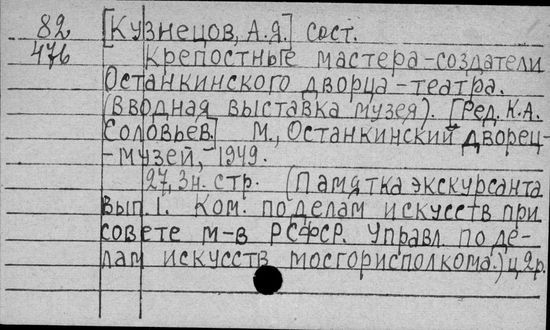 82 [Кузнецов, А.Я.] сост.
476 Крепостные мастера-создатели
Останкинского дворца-театра.
(Вводная выставка музея). [Ред. К.А.
Соловьев]. М., Останкинский дворец-
-музей, 1949.
27, 3 н. стр. (Памятка экскурсанта
вып. 1. Ком. по делам искусств при
совете м-в РСФСР. Управл. по де-
лам искусств мосгорисполкома.) ц 2 р.